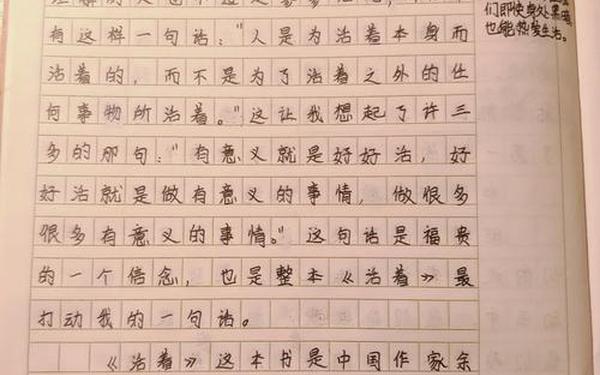 有这样一句话："人是为活着本身而
活着的，而不是为了活着之外的任
何事物所活着。"这让我想起了许三
多的那句："有意义就是好好活，好
好活就是做有意义的事情，做很多
很多有意义的事情。"这句话是福贵
的一个信念，也是整本《活着》最
打动我的一句话。
《活着》这本书是中国作家余
们即使身处黑暗
也能热爱生活。